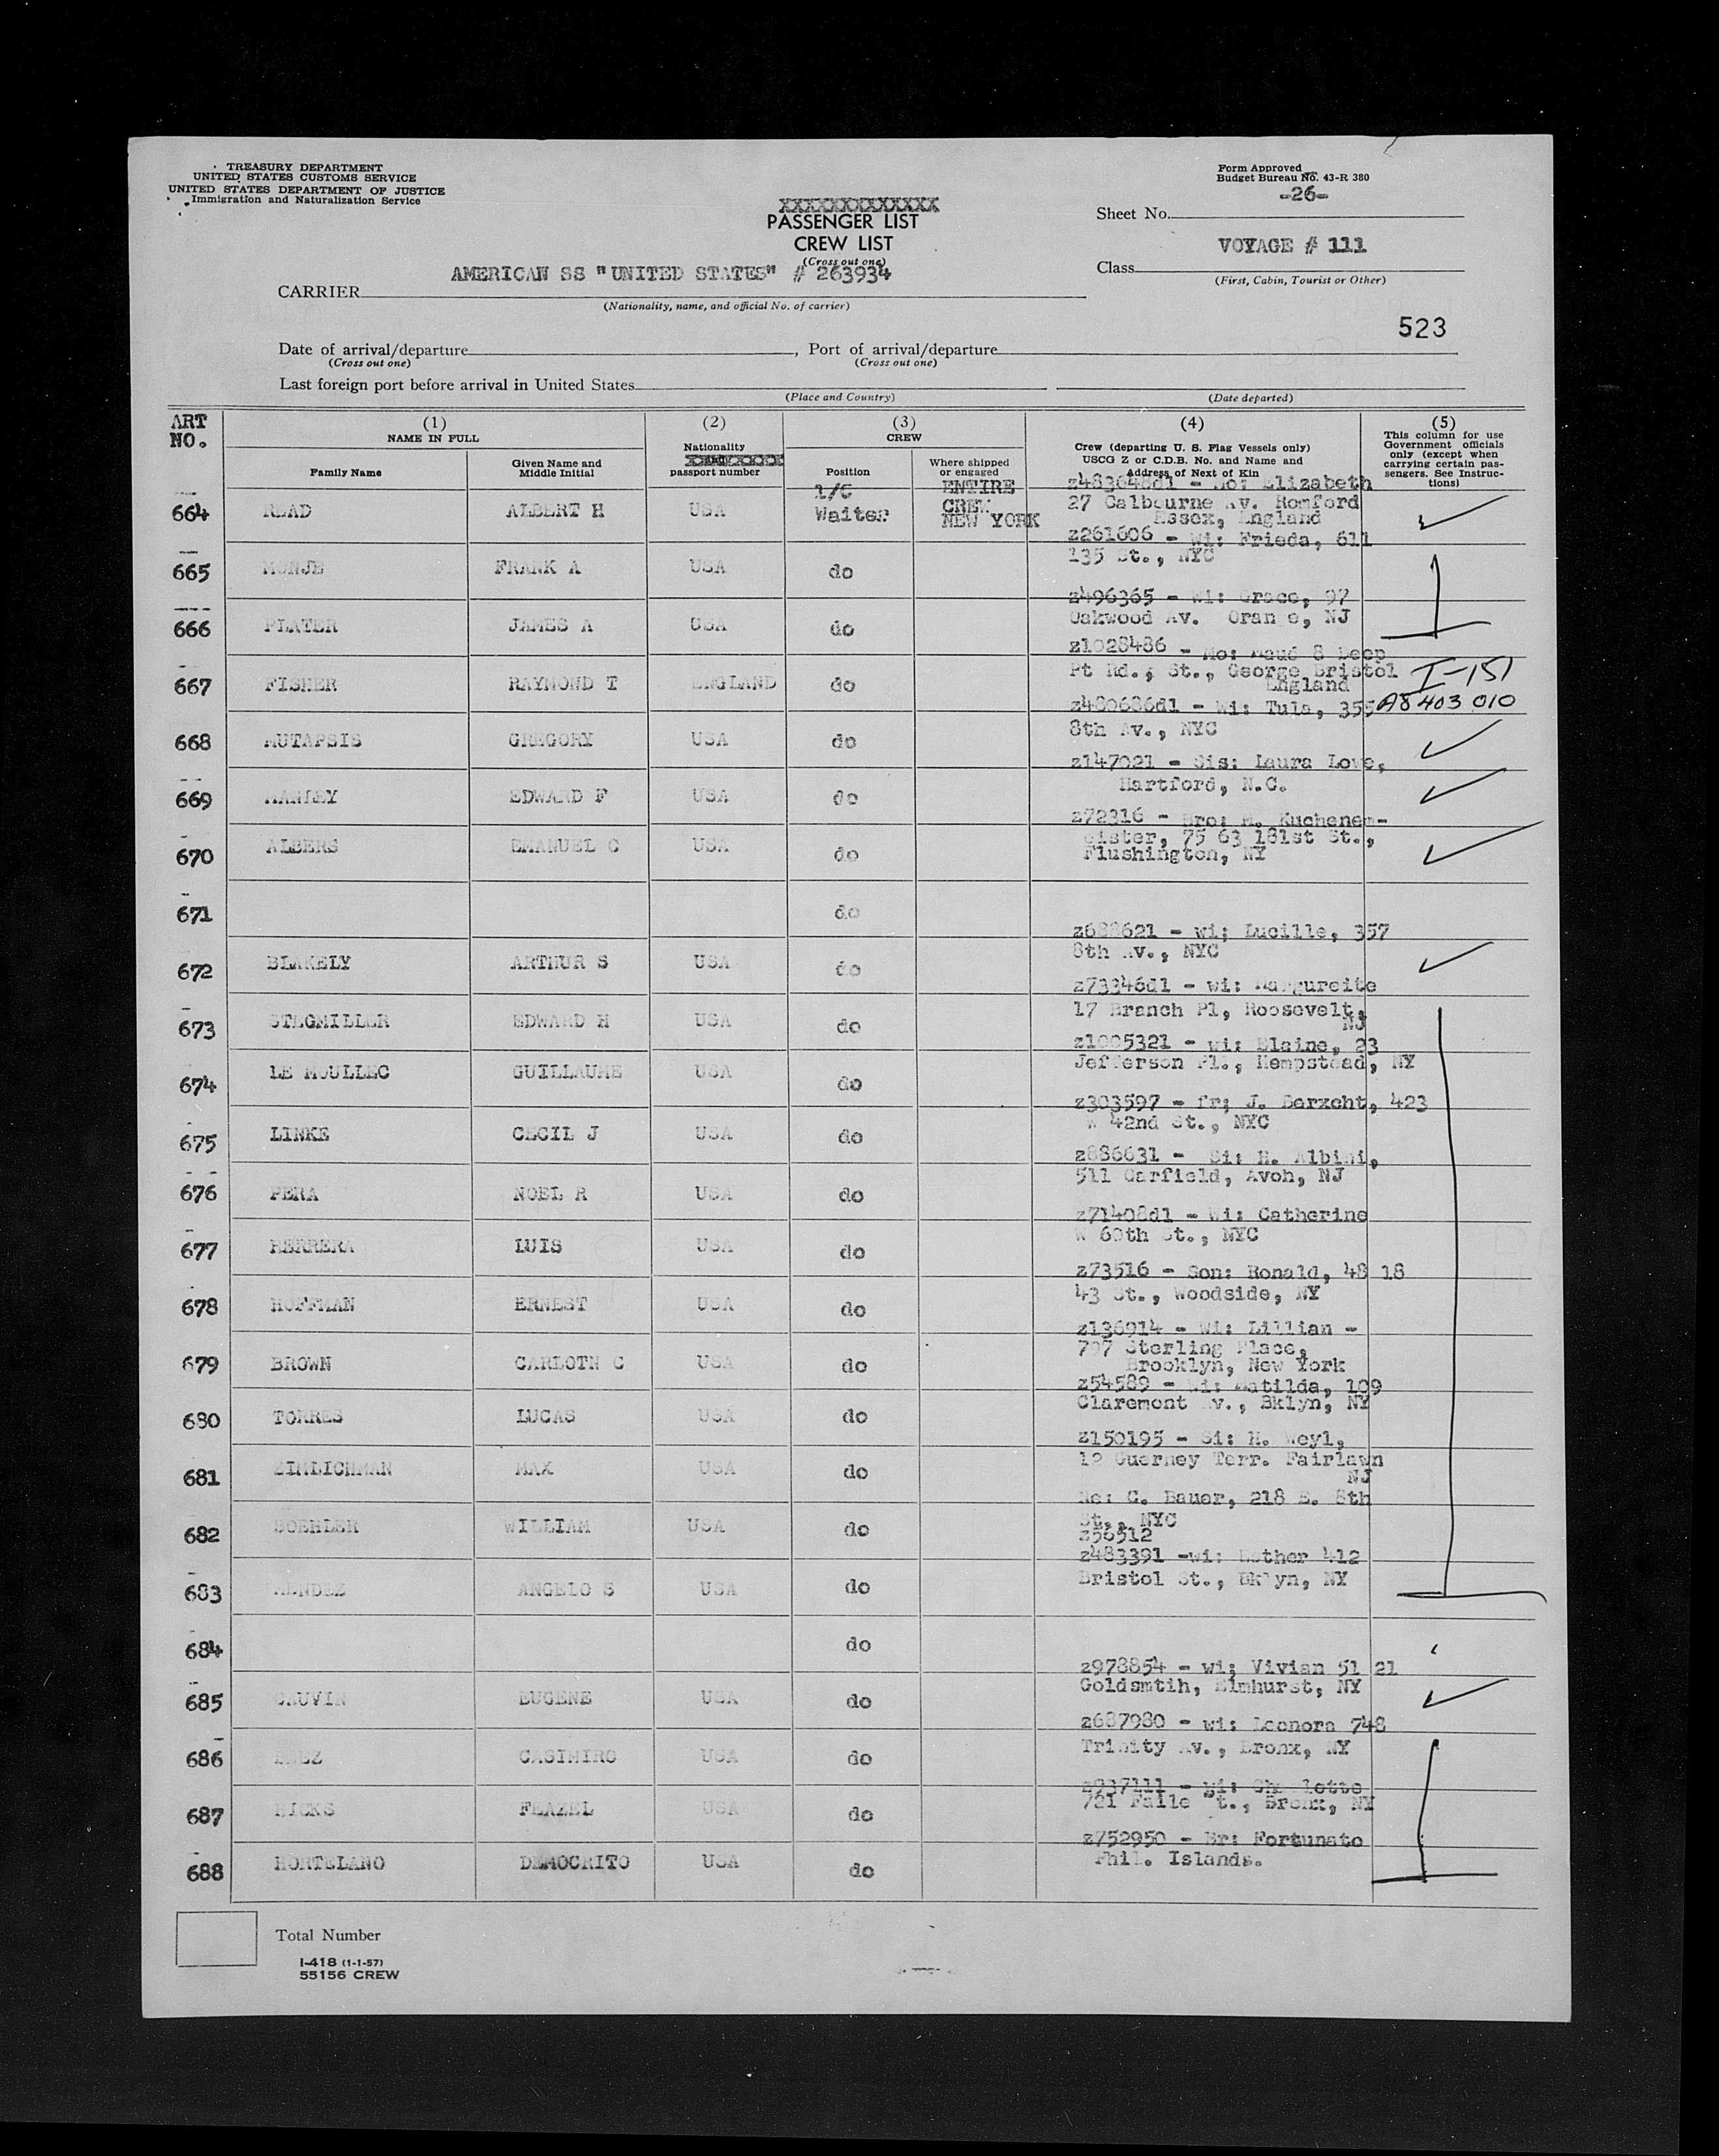 TREASURY DEPARTMENT
UNITED STATES CUSTOMS SERVICE
UNITED STATES DEPARTMENT OF JUSTICE
Immigration and Naturalization Service
Form Approved
Budget Bureau No. 43-R 380
XXXXXXXXXXXXX
PASSENGER LIST
CREW LIST
(Cross out one)
Sheet No. -26-
Class VOYAGE # 111
(First, Cabin, Tourist or Other)
CARRIER AMERICAN SS "UNITED STATES" # 263934
(Nationality, name, and official No. of carrier)
523
Date of arrival/departure , Port of arrival/departure
(Cross out one) (Cross out one)
Last foreign port before arrival in United States
(Place and Country) (Date departed)
ART NO.
(1) NAME IN FULL
Family Name
Given Name and Middle Initial
(2) Nationality
passport number
(3) CREW
Position
Where shipped or engaged
(4)
Crew (departing U. S. Flag Vessels only)
USCG Z or C.D.B. No. and Name and
Address of Next of Kin
(5)
This column for use
Government officials
only (except when
carrying certain pas-
sengers. See Instruc-
tions)
664 READ ALBERT H USA 1/C Waiter ENTIRE CREW NEW YORK z483648d1 - Mo: Elizabeth
27 Calbourne Av. Romford
Essex, England
665 MONJE FRANK A USA do z261606 - wi: Frieda, 611
135 St., NYC
666 PLATER JAMES A USA do z496365 - wi: Grace, 97
Oakwood Av. Orange, NJ
667 FISHER RAYMOND T ENGLAND do z1028486 - Mo: Maud 8 Deep
Pt Rd., St., George Bristol
England
I-151
A8 403 010
668 MUTAFSIS GREGORY USA do z480686d1 - Wi: Tula, 355
8th Av., NYC
669 MANLEY EDWARD F USA do z147021 - Sis: Laura Love,
Hartford, N.C.
670 ALBERS EMANUEL C USA do z72316 - Bro: M. Kuchenem-
eister, 75 63 181st St.,
Flushington, NY
671 do
672 BLAKELY ARTHUR S USA do wi; Lucille, 357
8th Av., NYC
673 STEGMILLER EDWARD H USA do z73346d1 - wi: Margureite
17 Branch Pl, Roosevelt,
NJ
674 LE MOULLEC GUILLAUME USA do z1005321 - wi: Elaine, 23
Jefferson Pl., Hempstead, NY
675 LINKE CECIL J USA do z303597 - fr; J. Berxcht, 423
W 42nd St., NYC
676 PERA NOEL R USA do z886631 - Si: H. Albini,
511 Garfield, Avoh, NJ
677 HERRERA LUIS USA do z71408d1 - Wi: Catherine
W 60th St., NYC
678 HOFFMAN ERNEST USA do z73516 - Son: Ronald, 48 18
43 St., Woodside, NY
679 BROWN CARLOTN C USA do z136914 - Wi: Lillian -
797 Sterling Place,
Brooklyn, New York
680 TORRES LUCAS USA do z54589 - Wi: Matilda, 109
Claremont Av., Bklyn, NY
681 ZIMLICHMAN MAX USA do z150195 - Si: H. Weyl,
12 Guerney Terr. Fairlawn
NJ
682 SOEHLER WILLIAM USA do Ne: C. Bauer, 218 E. 8th
St., NYC
z56512
683 MENDEZ ANGELO S USA do z483391 -wi: Esther 412
Bristol St., Bklyn, NY
684 do
685 CAUVIN EUGENE USA do z978854 - wi; Vivian 51 21
Goldsmtih, Elmhurst, NY
686 CASIMIRO USA do z687980 - wi: Leonora 748
Trinity Av., Bronx, NY
687 HICKS FLAZEL USA do z937111 - wi: Charlotte
721 Faile St., Bronx, NY
688 HORTELANO DEMOCRITO USA do z752950 - Br: Fortunato
Phil. Islands.
Total Number
I-418 (1-1-57)
55156 CREW